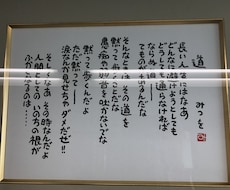 道
みつを
長い人生にはなあ
どんなに避けようとしても
どうしても通らなければ
ならぬ道
てものがあるんだな
そんなときはその道を
黙って歩くことだな
愚痴や弱音を吐かないでな
黙って歩くんだよ
ただ黙って
涙なんか見せちゃダメだぜ!!
そしてなあその時なんだよ
人間としてのいのちの根が
ふかくなるのは……